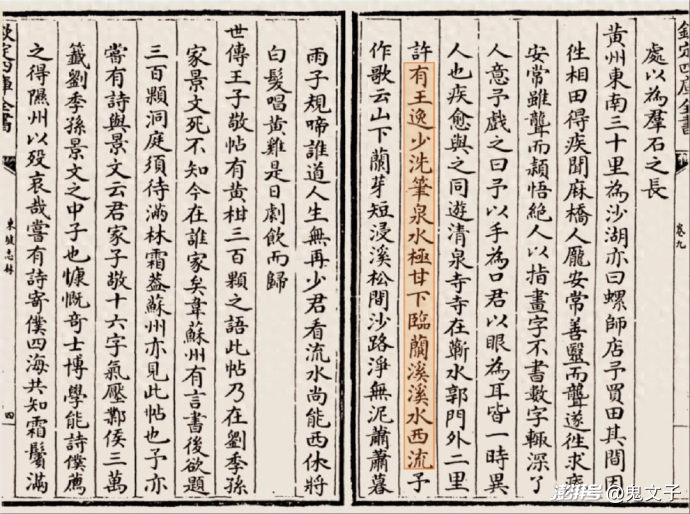 欽定四庫全書
卷九
處以為羣石之長
黄州東南三十里為沙湖亦曰螺師店予買田其間因
徃相田得疾聞麻橋人龐安常善醫而聾遂徃求療
安常雖聾而頴悟絶人以指畫字不書數字輒深了
人意予戯之曰予以手為口君以眼為耳皆一時異
人也疾愈與之同遊清泉寺寺在蘄水郭門外二里
許有王逸少洗筆泉水極甘下臨蘭溪溪水西流予
作歌云山下蘭芽短浸溪松間沙路淨無泥蕭蕭暮
雨子規啼誰道人生無再少君看流水尚能西休將
白髮唱黄雞是日劇飲而歸
世傳王子敬帖有黄柑三百顆之語此帖乃在劉季孫
家景文死不知今在誰家矣韋蘇州有言書後欲題
三百顆洞庭須待滿林霜葢蘇州亦見此帖也予亦
嘗有詩與景文云君家子敬十六字氣壓鄴侯三萬
籤劉季孫景文之中子也慷慨奇士博學能詩僕薦
之得隰州以殁哀哉嘗有詩寄僕四海共知霜鬢滿
欽定四庫全書
東坡志林
四
澎湃号@鬼文子